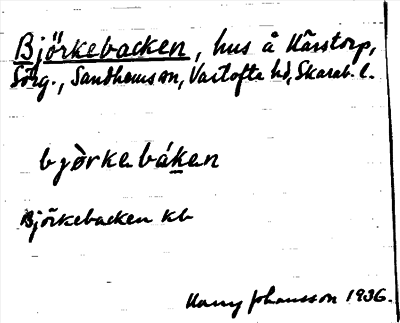 Björkebacken, hus å Kårstorp,
Sörg., Sandhems sn, Vartofta hd, Skarab. l.
bjòrkebáken
Björkebacken kb
Harry Johansson 1936.